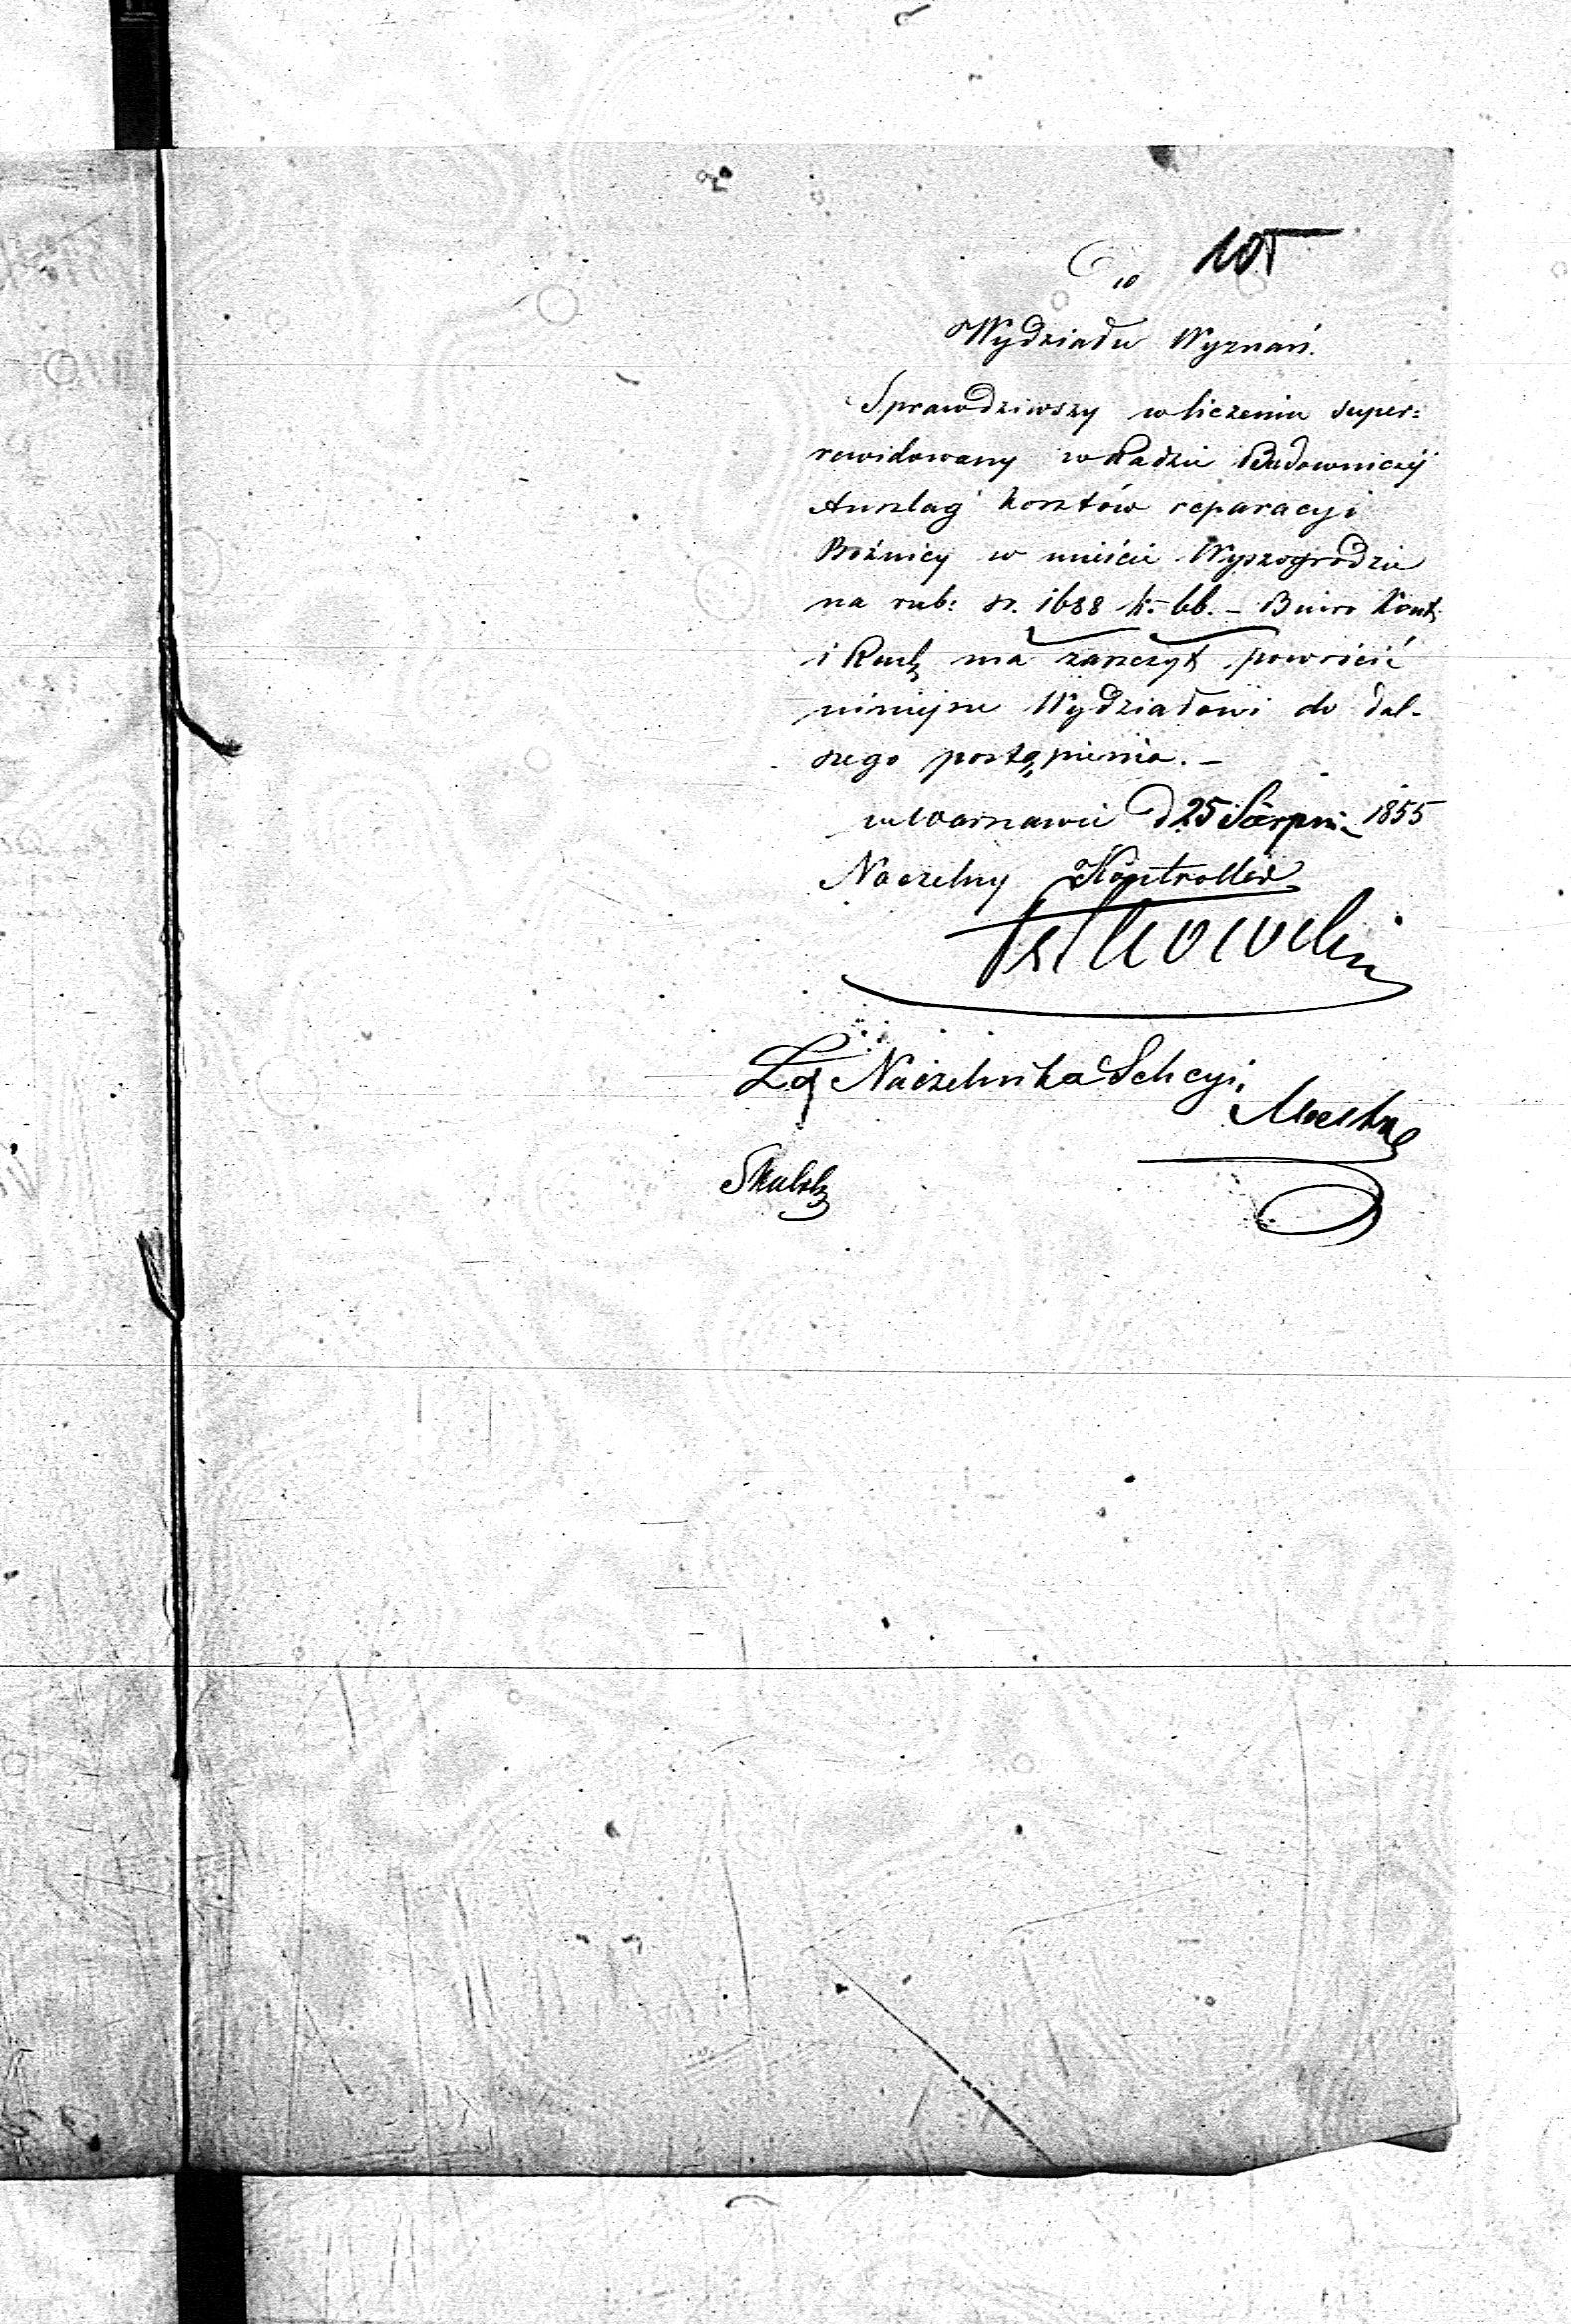 105
Do
Wydziału Wyznań.
Sprawdziwszy w liczeniu super=
rewidowany w Radzie Budowniczej
Anszlag kosztów reparacyi
Bóżnicy w mieście Wyszogrodzie
na rub: sr. 1688 k. 66. – Biuro Kont
i Rach ma zaszczyt powrócić
niniejsze Wydziałowi do dal-
szego postąpienia. –
w Warszawie d 25 Sierpnia 1855
Naczelny Kontroller
Za Naczelnika Sekcyi,